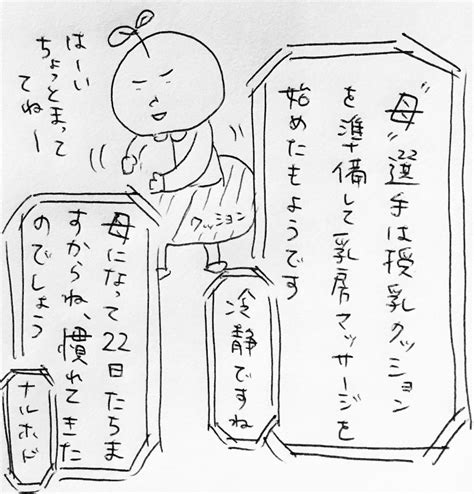 "母"選手は授乳クッション
を準備して乳房マッサージを
始めたもようです
はーい
ちょっとまって
てねー
クッション
冷静ですね
母になって22日たちま
すからね、慣れてきた
のでしょう
ナルホド